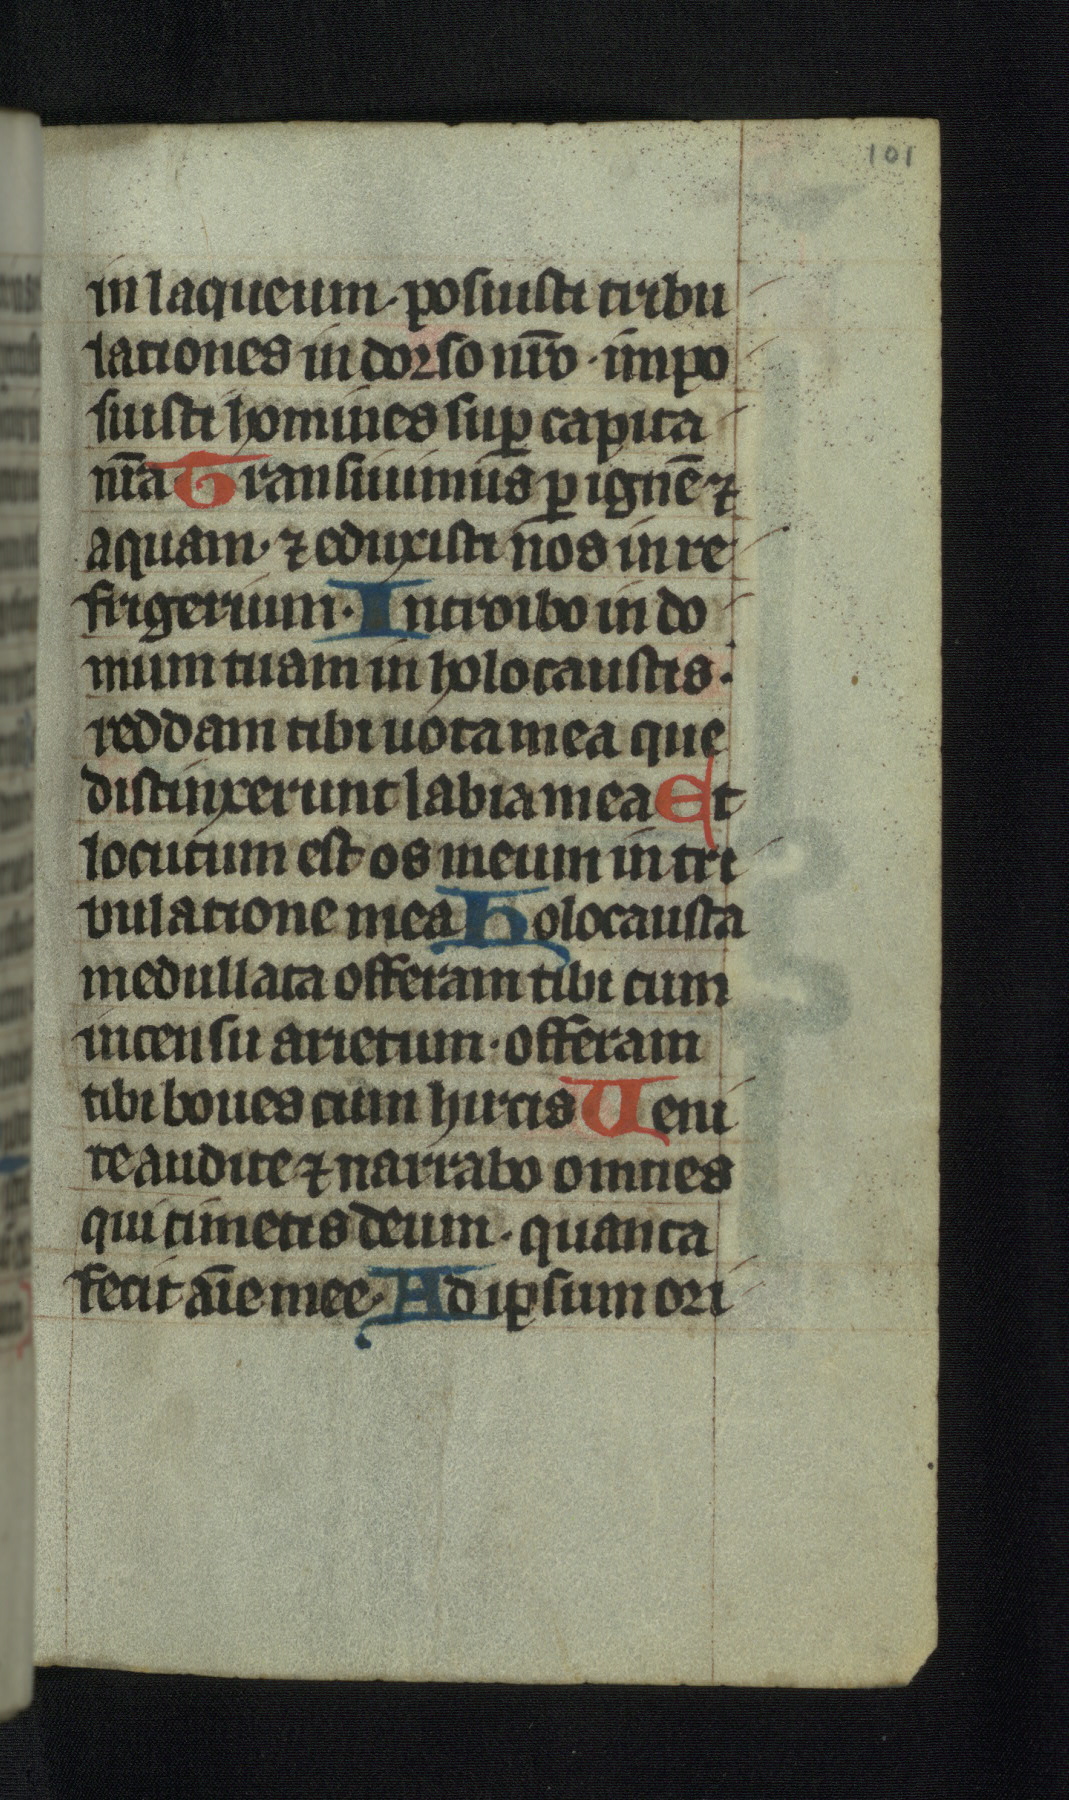 101
in laqueum · posuisti tribu
lationes in dorso nr̅o · impo
suisti homines suꝑ capita
nr̅a Transiuimus ꝑ igne̅ ⁊
aquam · ⁊ eduxisti nos in re
frigerium · Introibo in do
mum tuam in holocaustis ·
reddam tibi uota mea que
distinxerunt labia mea Et
locutum est os meum in tri
bulatione mea Holocausta
medullata offeram tibi cum
incensu arietum · offeram
tibi boues cum hircis Ueni
te audite ⁊ narrabo omnes
qui timetis deum · quanta
fecit ai̅e mee · Ad ipsum ori